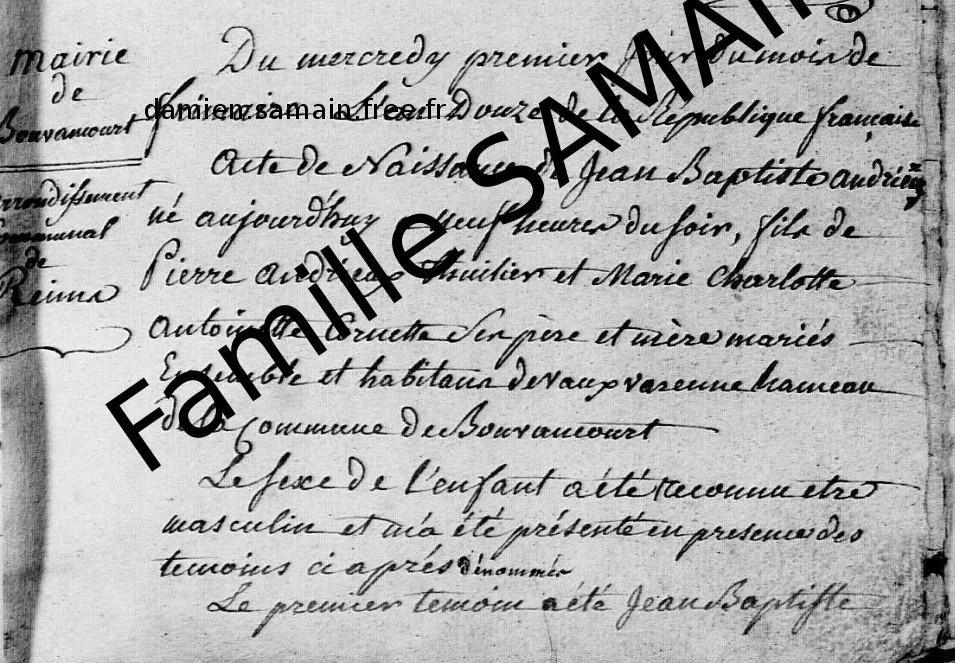 mairie
de
Bouvancourt
arrondissement
Communal
de
Reims
Du mercredy premier jour du mois de
frimaire L'an Douze de la République française
Acte de Naissance de Jean Baptiste andrieux
né aujourd'huy neuf heures du soir, fils de
Pierre andrieux thuilier et Marie Charlotte
Antoinette Cornette Ses père et mère mariés
Ensemble et habitans de Vaux varenne hameau
de la Commune de Bouvancourt
Le sexe de l'enfant a été reconnu etre
masculin et m'a été présenté en presence des
temoins ci après dénommés
Le premier temoin a été Jean Baptiste
Famille SAMAIN
damien.samain.free.fr